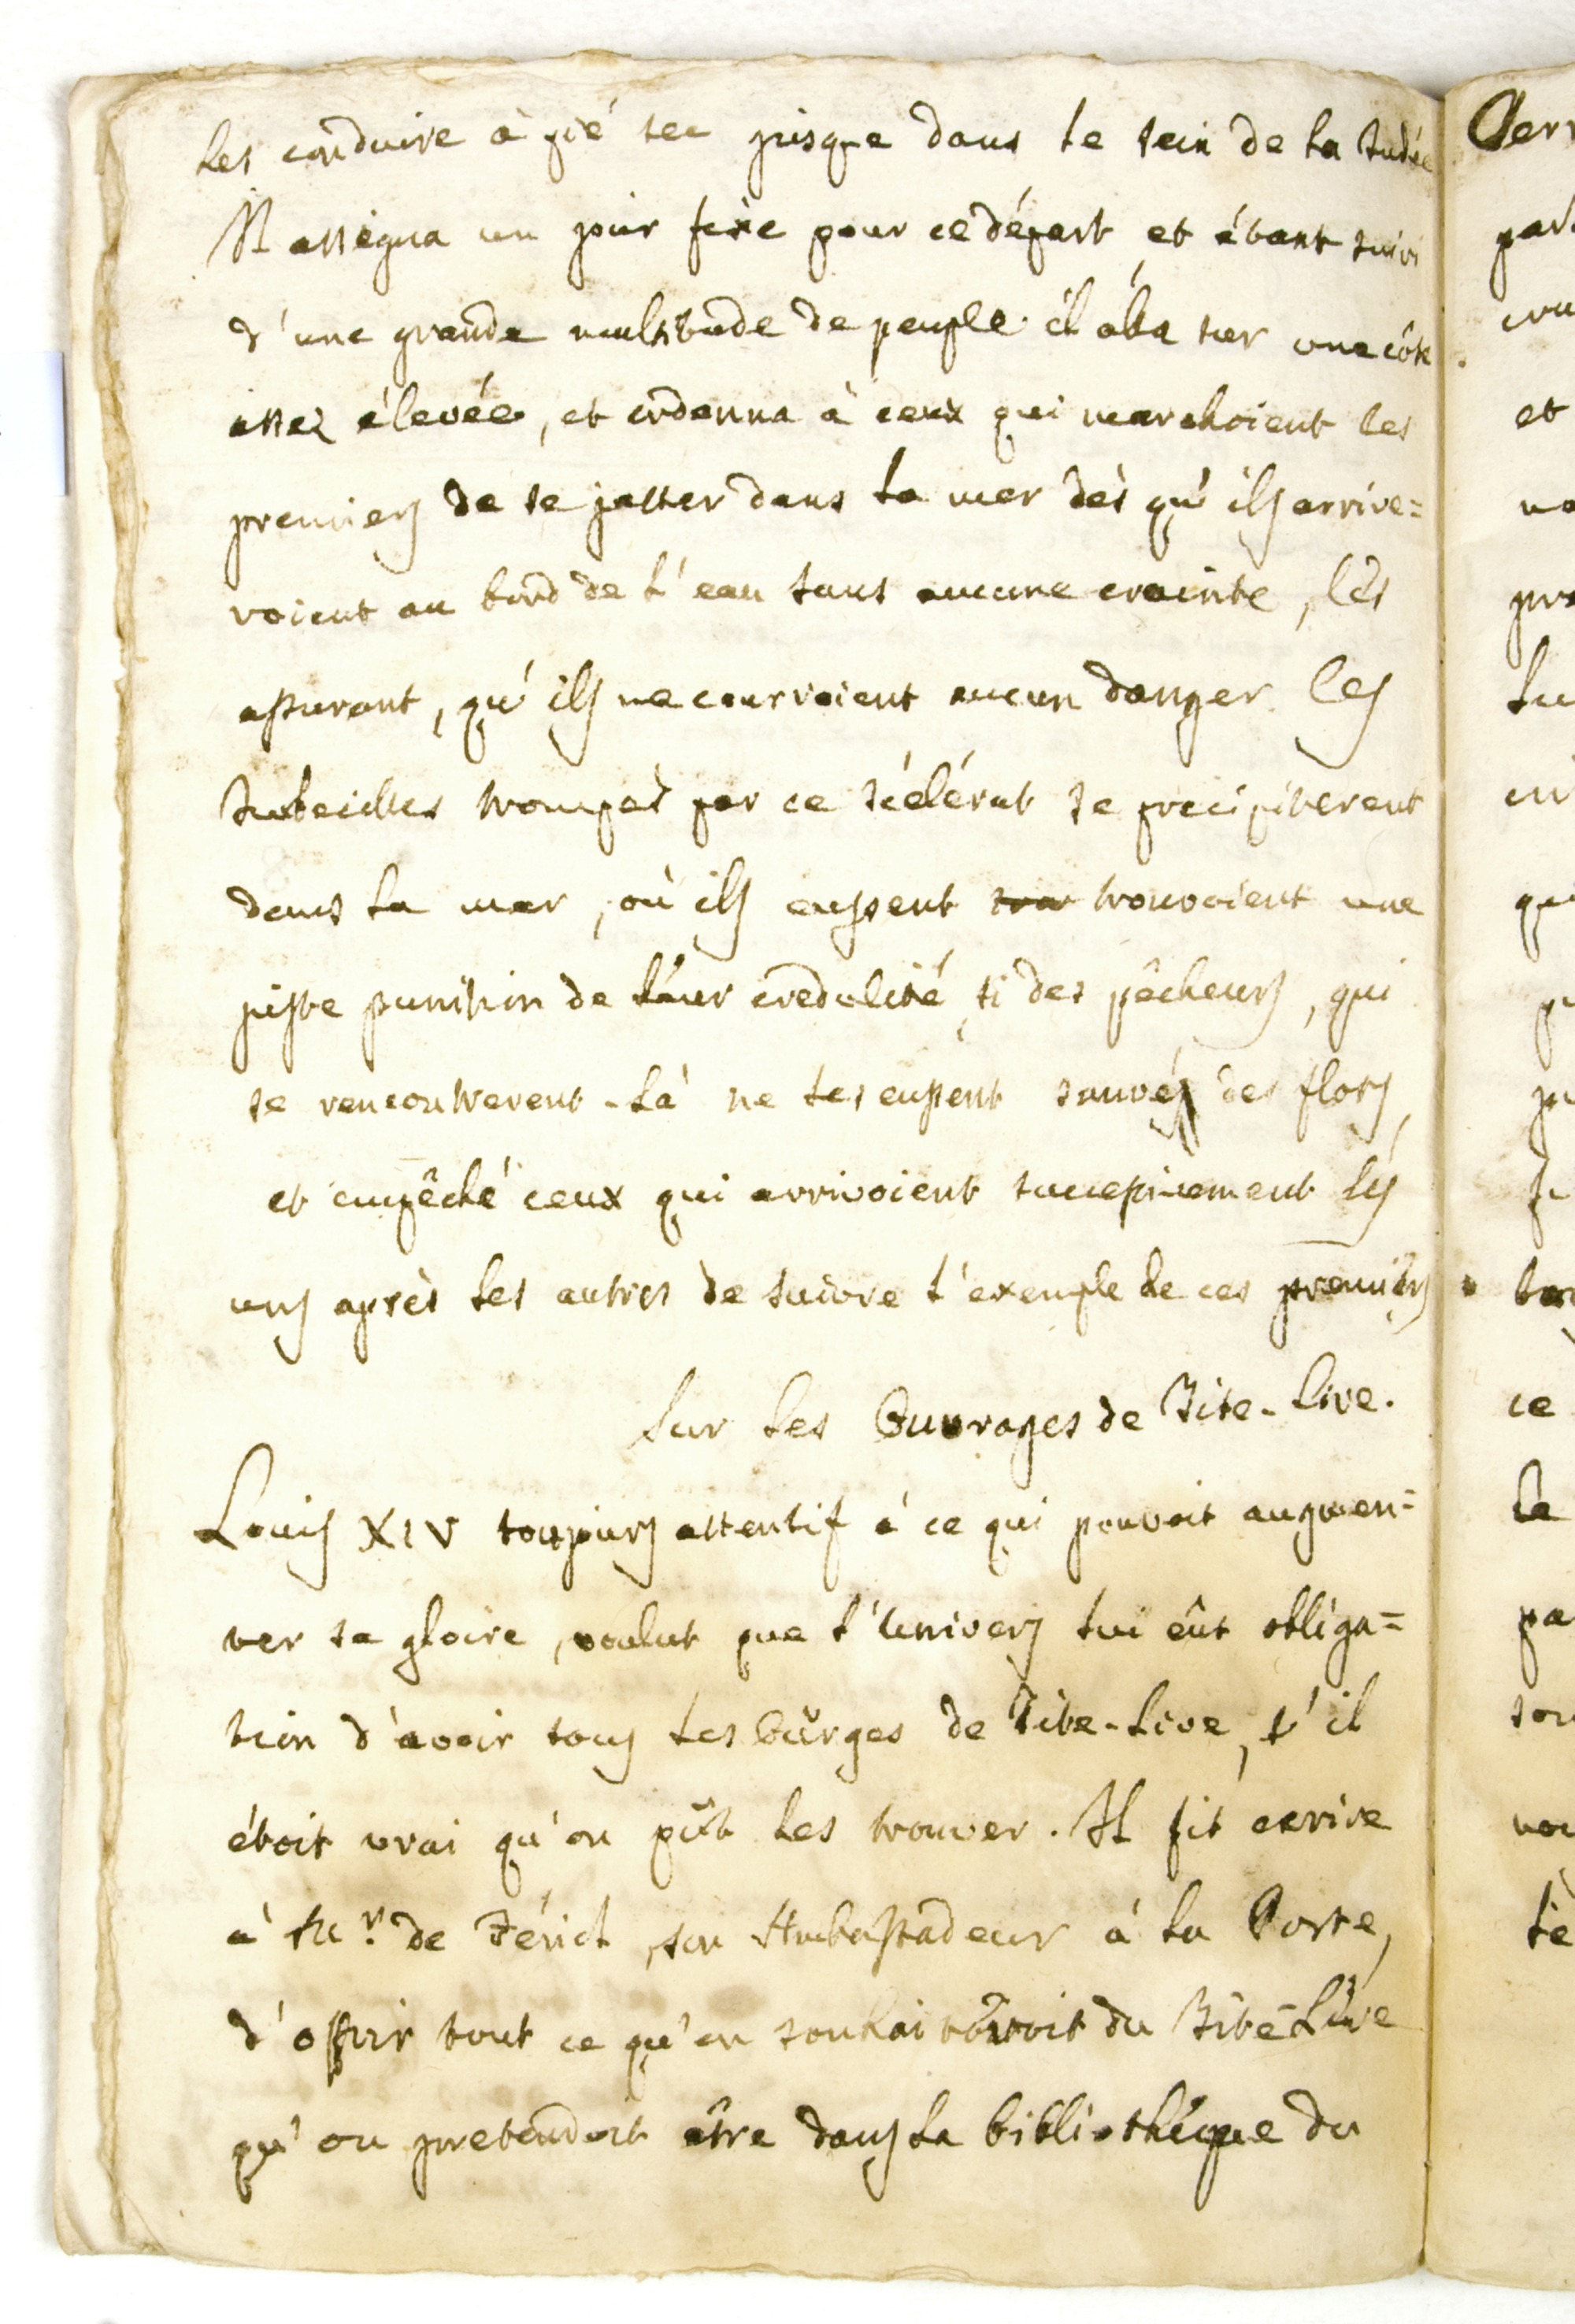 les conduire à pié sec jusque dans le sein de la Judée
Il assigna un jour fixe pour ce départ et étant suivi
d'une grande multitude de peuple il alla sur une côte
assez élevée, et ordonna à ceux qui marchoient les
premiers de se jetter dans la mer dès qu'ils arrive=
roient au bord de l'eau sans aucune crainte, les
assurant, qu'ils ne courroient aucun danger. Ces
imbecilles trompés par ce scélérat se precipiterent
dans la mer, où ils eussent trou trouvoient une
juste punition de leur credulité, si des pêcheurs, qui
se rencontrerent-là ne les eussent sauvés des flots,
et empêché ceux qui arrivoient successivement les
uns après les autres de suivre l'exemple de ces premiers
Sur les Ouvrages de Tite-Live.
Louis XIV toujours attentif à ce qui pouvoit augmen=
ter sa gloire, voulut que l'Univers lui eût obliga=
tion d'avoir tous les Ouvrges de Tite-Live, s'il
étoit vrai qu'on pût les trouver. Il fit ecrire
à Mr. de , son Ambassadeur à la Porte,
d'offrir tout ce qu'on du Tite-Live
qu'on pretendoit être dans la bibliothéque du
Derr
par
cru
et
pro
lu
qui
ce
le
pa